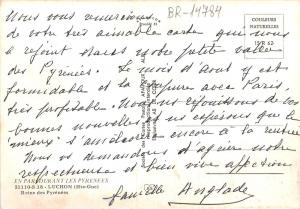 BR-14784
Nous vous remercions
de votre très aimable carte qui nous
a rejoint dans notre petite vallée
des Pyrénées. Le mois d'Aout y est
formidable et la avec Paris,
très profitable. Nous nous réjouissons de vos
bonnes nouvelles et espérons que le
"mieux" s'améliorera encore à la rentrée
Nous vous demandons d'agréer notre
respectueuse et bien vive affection
Famille Anglade
COULEURS
NATURELLES
EN PARCOURANT LES PYRENEES
31110-8.18 - LUCHON (Hte-Gne)
Reine des Pyrénées